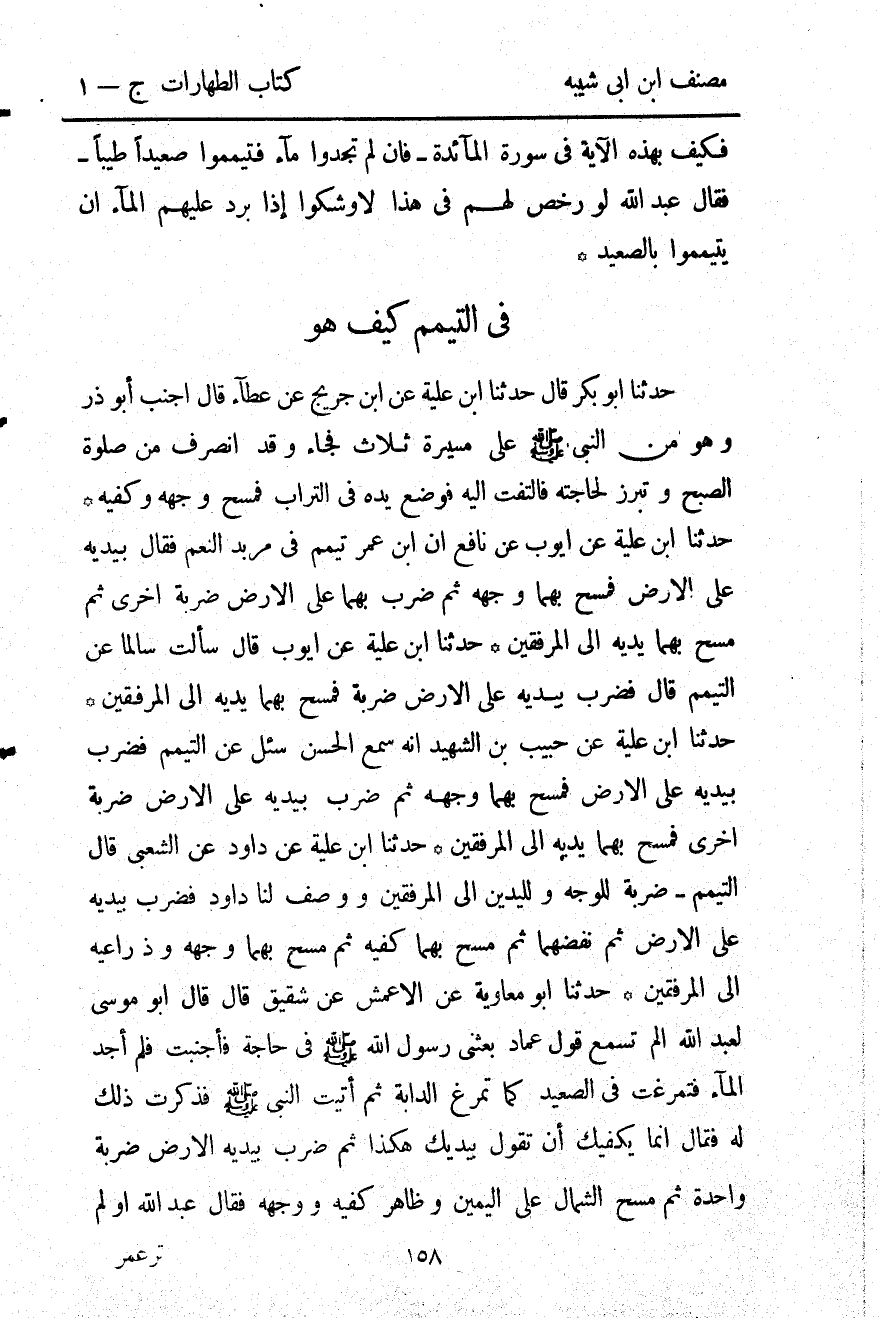 مصنف ابن ابى شيبه كتاب الطهارات ج – ١
فكيف بهذه الآية فى سورة المآئدة ـ فان لم تجدوا مآء فتيمموا صعيداً طيباً ـ
فقال عبد الله لو رخص لهم فى هذا لاوشكوا إذا برد عليهم المآء ان
يتيمموا بالصعيد *
فى التيمم كيف هو
حدثنا ابو بكر قال حدثنا ابن علية عن ابن جريج عن عطآء قال اجنب أبو ذر
و هو من النبى ﷺ على مسيرة ثلاث فجاء و قد انصرف من صلوة
الصبح و تبرز لحاجته فالتفت اليه فوضع يده فى التراب فمسح و جهه و كفيه *
حدثنا ابن علية عن ايوب عن نافع ان ابن عمر تيمم فى مربد النعم فقال بيديه
على الارض فمسح بهما و جهه ثم ضرب بهما على الارض ضربة اخرى ثم
مسح بهما يديه الى المرفقين * حدثنا ابن علية عن ايوب قال سألت سالما عن
التيمم قال فضرب بيديه على الارض ضربة فمسح بهما يديه الى المرفقين *
حدثنا ابن علية عن حبيب بن الشهيد انه سمع الحسن سئل عن التيمم فضرب
بيديه على الارض فمسح بهما وجهه ثم ضرب بيديه على الارض ضربة
اخرى فمسح بهما يديه الى المرفقين * حدثنا ابن علية عن داود عن الشعبى قال
التيمم ـ ضربة للوجه و لليدين الى المرفقين و و صف لنا داود فضرب بيديه
على الارض ثم نفضهما ثم مسح بهما كفيه ثم مسح بهما و جهه و ذراعيه
الى المرفقين * حدثنا ابو معاوية عن الاعمش عن شقيق قال قال ابو موسى
لعبد الله الم تسمع قول عماد بعثنى رسول الله ﷺ فى حاجة فأجنبت فلم أجد
المآء فتمرغت فى الصعيد كما تمرغ الدابة ثم أتيت النبى ﷺ فذكرت ذلك
له فقال انما يكفيك أن تقول بيديك هكذا ثم ضرب بيديه الارض ضربة
واحدة ثم مسح الشمال على اليمين و ظاهر كفيه و وجهه فقال عبد الله او لم
١٥٨ تر عمر